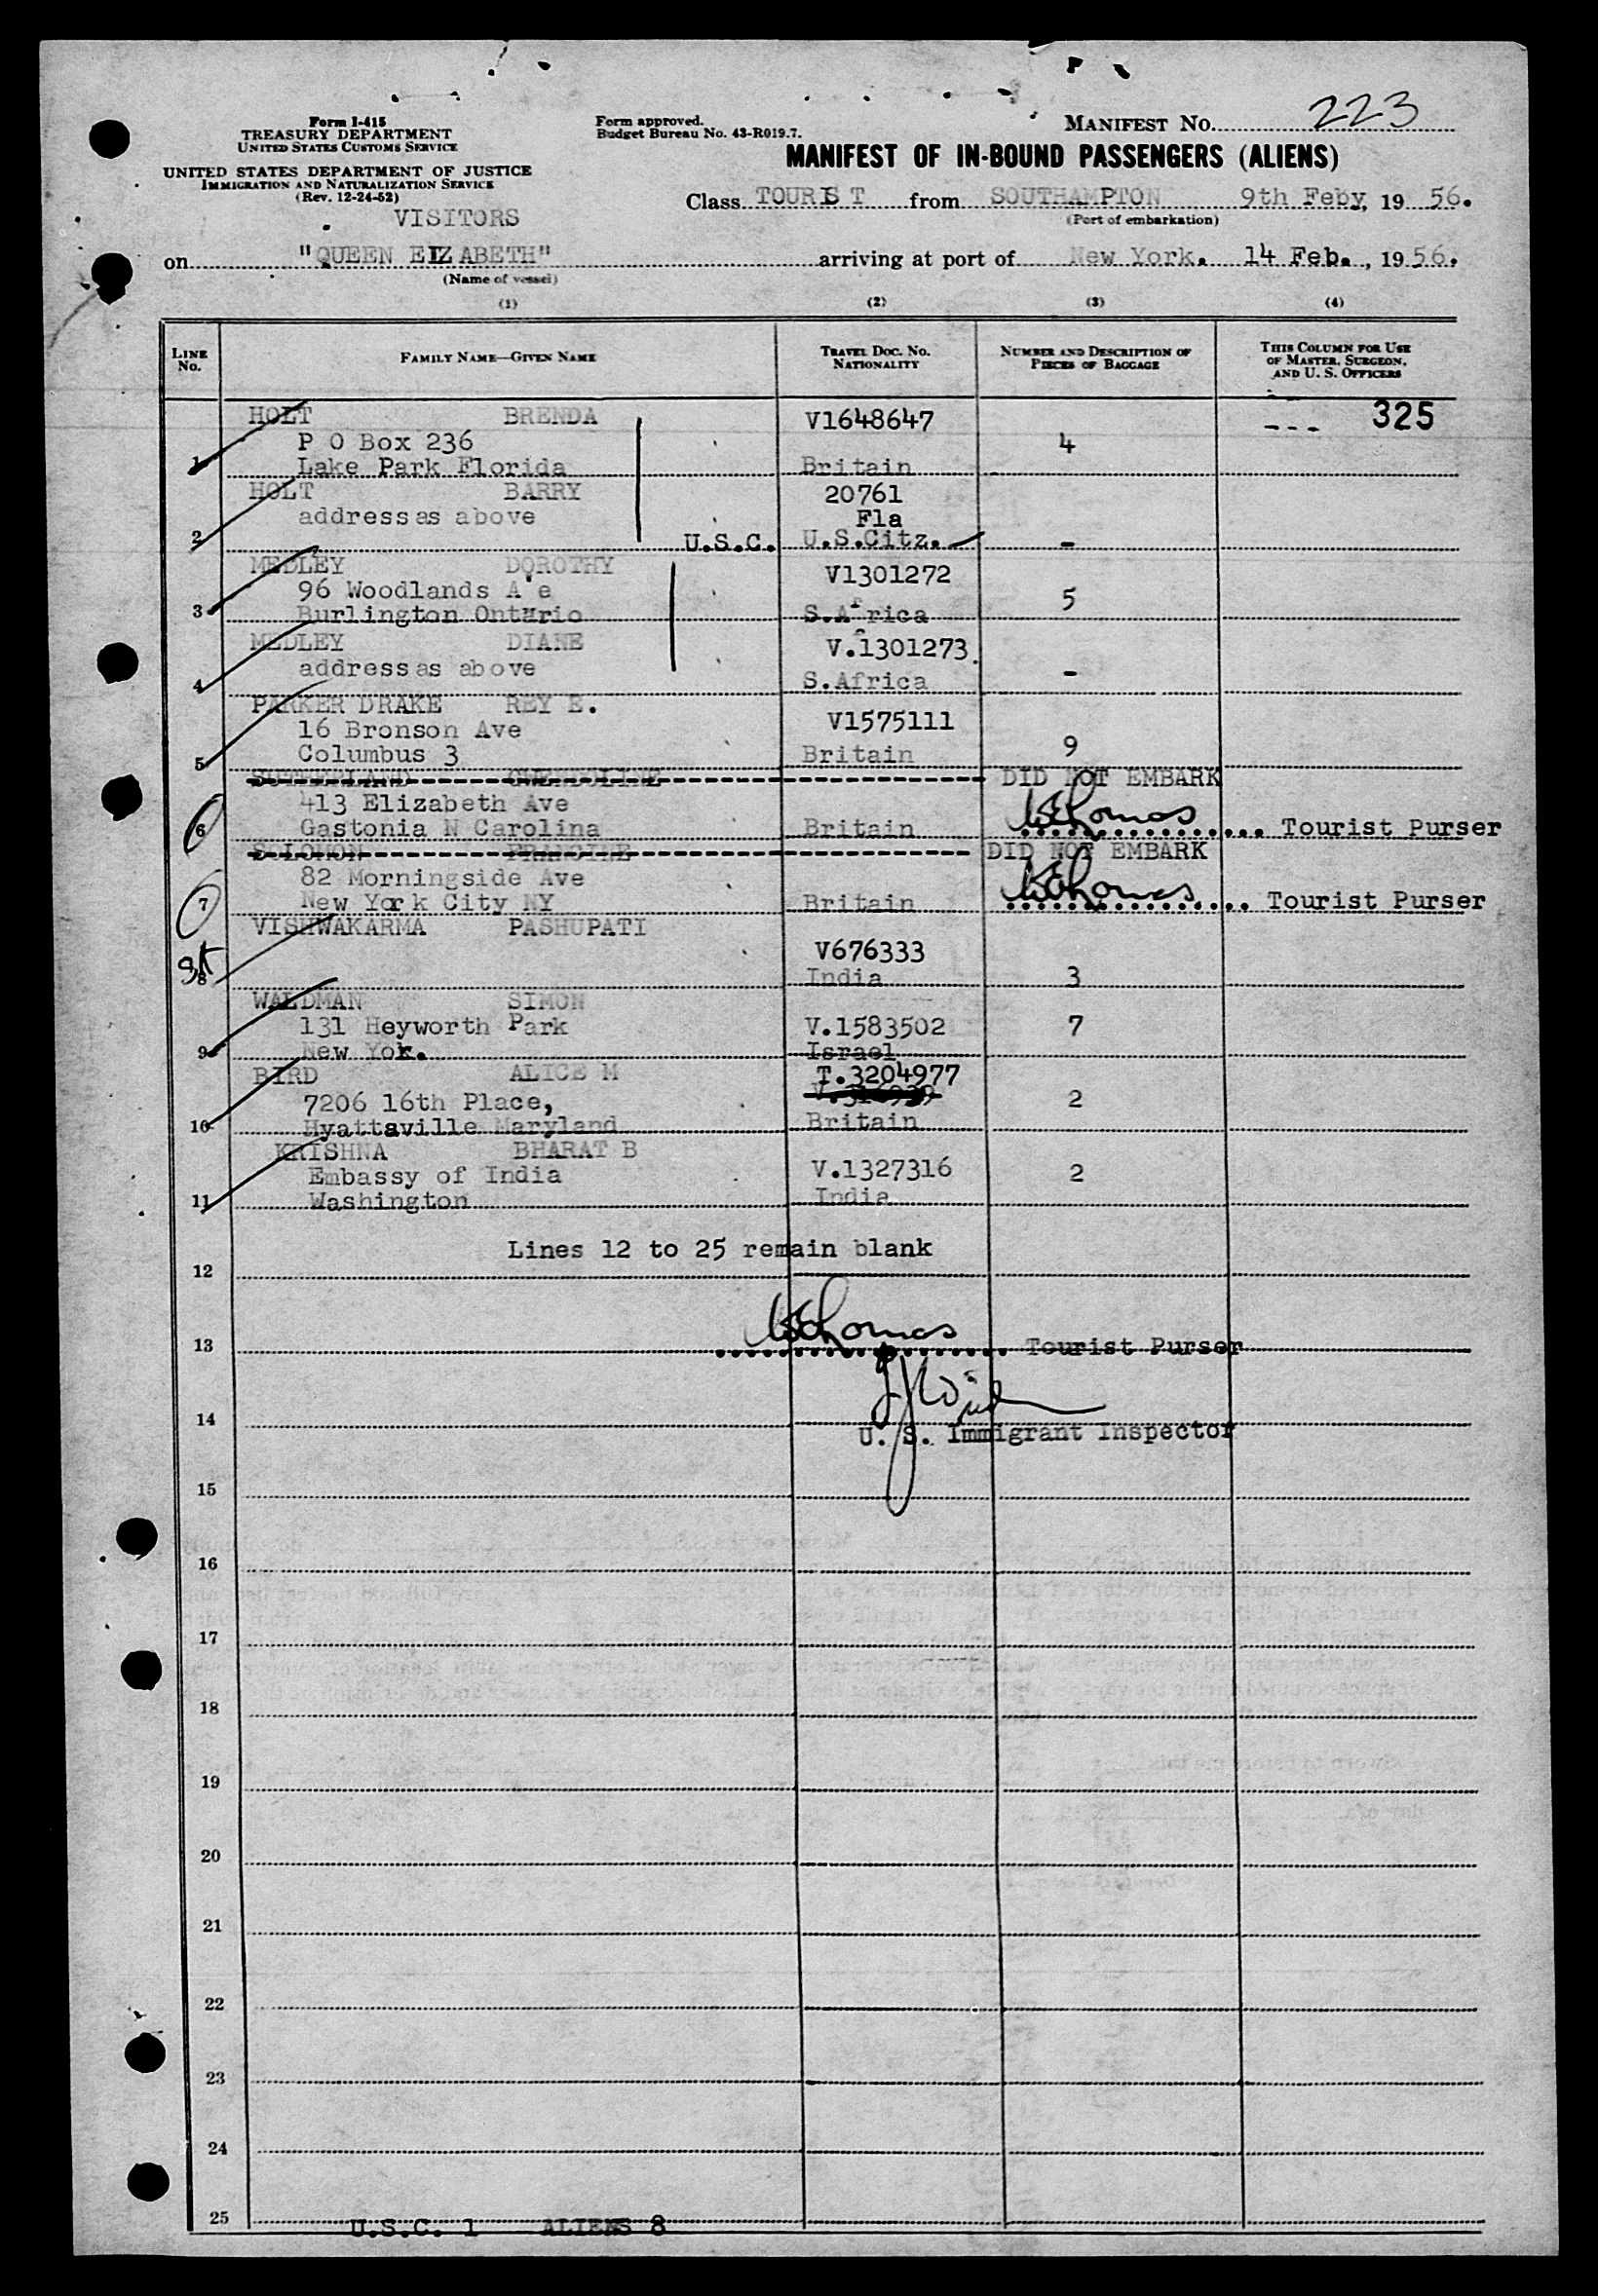 Form I-415
TREASURY DEPARTMENT
UNITED STATES CUSTOMS SERVICE
UNITED STATES DEPARTMENT OF JUSTICE
IMMIGRATION AND NATURALIZATION SERVICE
(Rev. 12-24-52)
VISITORS
Form approved.
Budget Bureau No. 43-R019.7.
MANIFEST NO. 223
MANIFEST OF IN-BOUND PASSENGERS (ALIENS)
Class TOURIST from SOUTHAMPTON 9th Feby, 19 56.
(Port of embarkation)
on "QUEEN ELIZABETH" arriving at port of New York. 14 Feb., 19 56.
(Name of vessel)
(1) (2) (3) (4)
LINE No. FAMILY NAME—GIVEN NAME TRAVEL DOC. NO. NATIONALITY NUMBER AND DESCRIPTION OF PIECES OF BAGGAGE THIS COLUMN FOR USE OF MASTER, SURGEON, AND U. S. OFFICERS
HOLT BRENDA V1648647 --- 325
P O Box 236 4
1 Lake Park Florida Britain
HOLT BARRY 20761
address as above Fla
2 U.S.C. U.S.Citz. -
MEDLEY DOROTHY V1301272
96 Woodlands A'e 5
3 Burlington Ontario S.Africa
MEDLEY DIANE V.1301273
address as above -
4 S.Africa
PARKER DRAKE REY E.
16 Bronson Ave V1575111
5 Columbus 3 Britain 9
SUTHERLAND GWENDOLINE DID NOT EMBARK
413 Elizabeth Ave
6 Gastonia N Carolina Britain Tourist Purser
SOLOMON FRANCINE DID NOT EMBARK
82 Morningside Ave
7 New York City NY Britain Tourist Purser
VISHWAKARMA PASHUPATI
V676333
8 India 3
WALDMAN SIMON
131 Heyworth Park V.1583502 7
9 New Yok. Israel
BIRD ALICE M T.3204977
7206 16th Place, 2
10 Hyattsville Maryland Britain
KRISHNA BHARAT B
Embassy of India V.1327316 2
11 Washington India
Lines 12 to 25 remain blank
12
13 Tourist Purser
14
U. S. Immigrant Inspector
15
16
17
18
19
20
21
22
23
24
25
U.S.C. 1 ALIENS 8